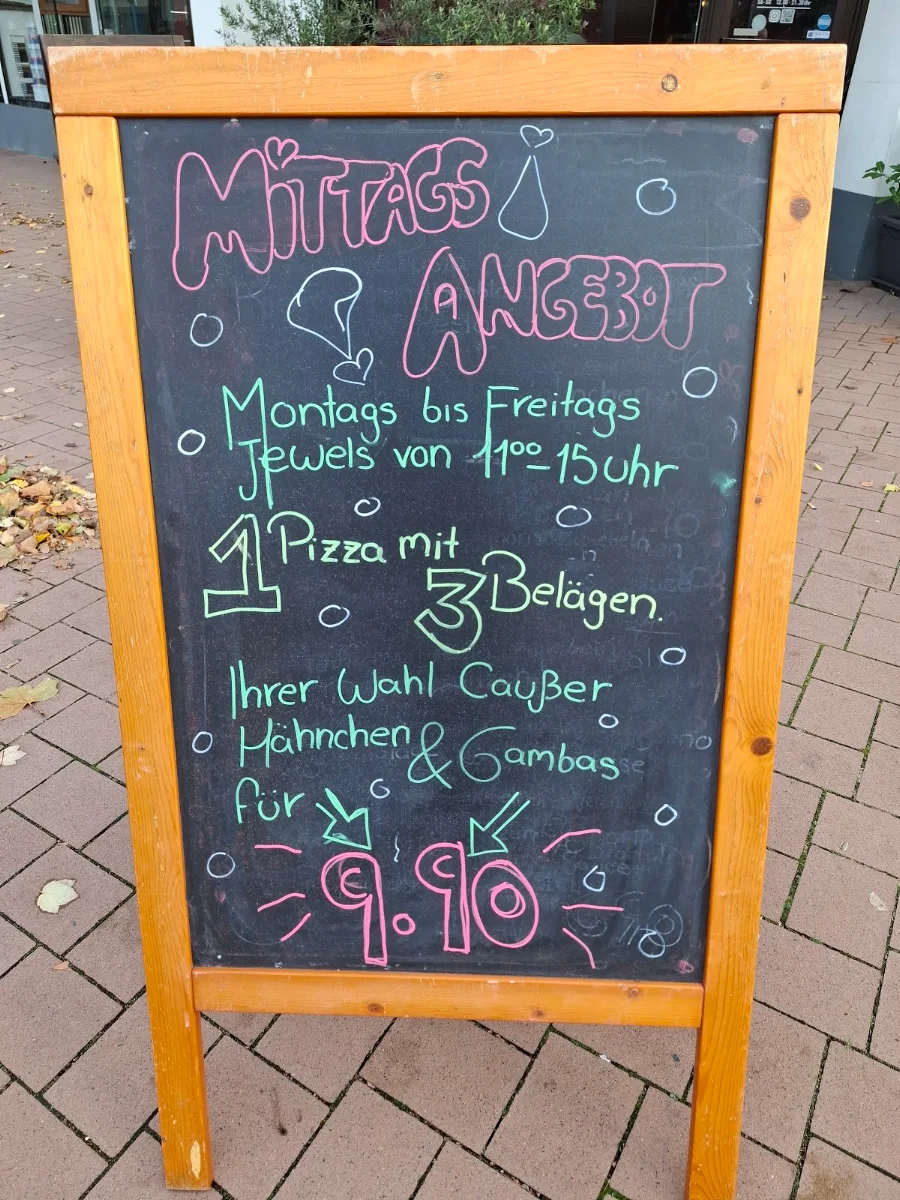 MiTTAGS
ANGEBOT
Montags bis Freitags
Jewels von 11oo-15 Uhr
1 Pizza mit
3 Belägen.
Ihrer Wahl Caußer
Hähnchen & Gambas
für
9.90